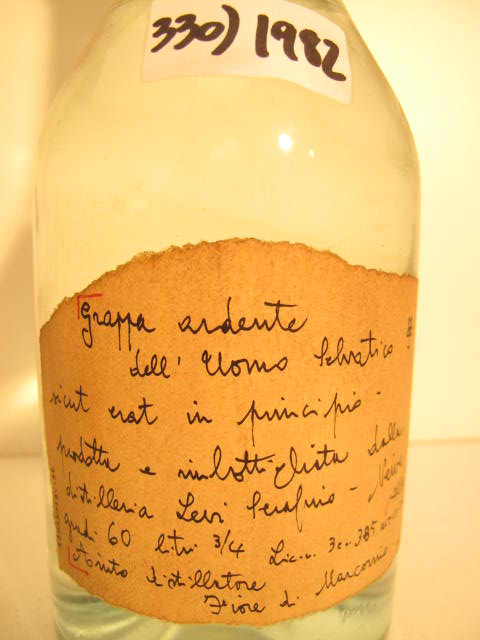 330) 1982
Grappa ardente
dell' Uomo Selvatico
sicut erat in principio -
prodotta e imbottigliata dalla
distilleria Levi Serafino - Neive
gradi 60 litri 3/4 Lic. n. 30 n. 385
Aiuto distillatore
Fiore di Marconio